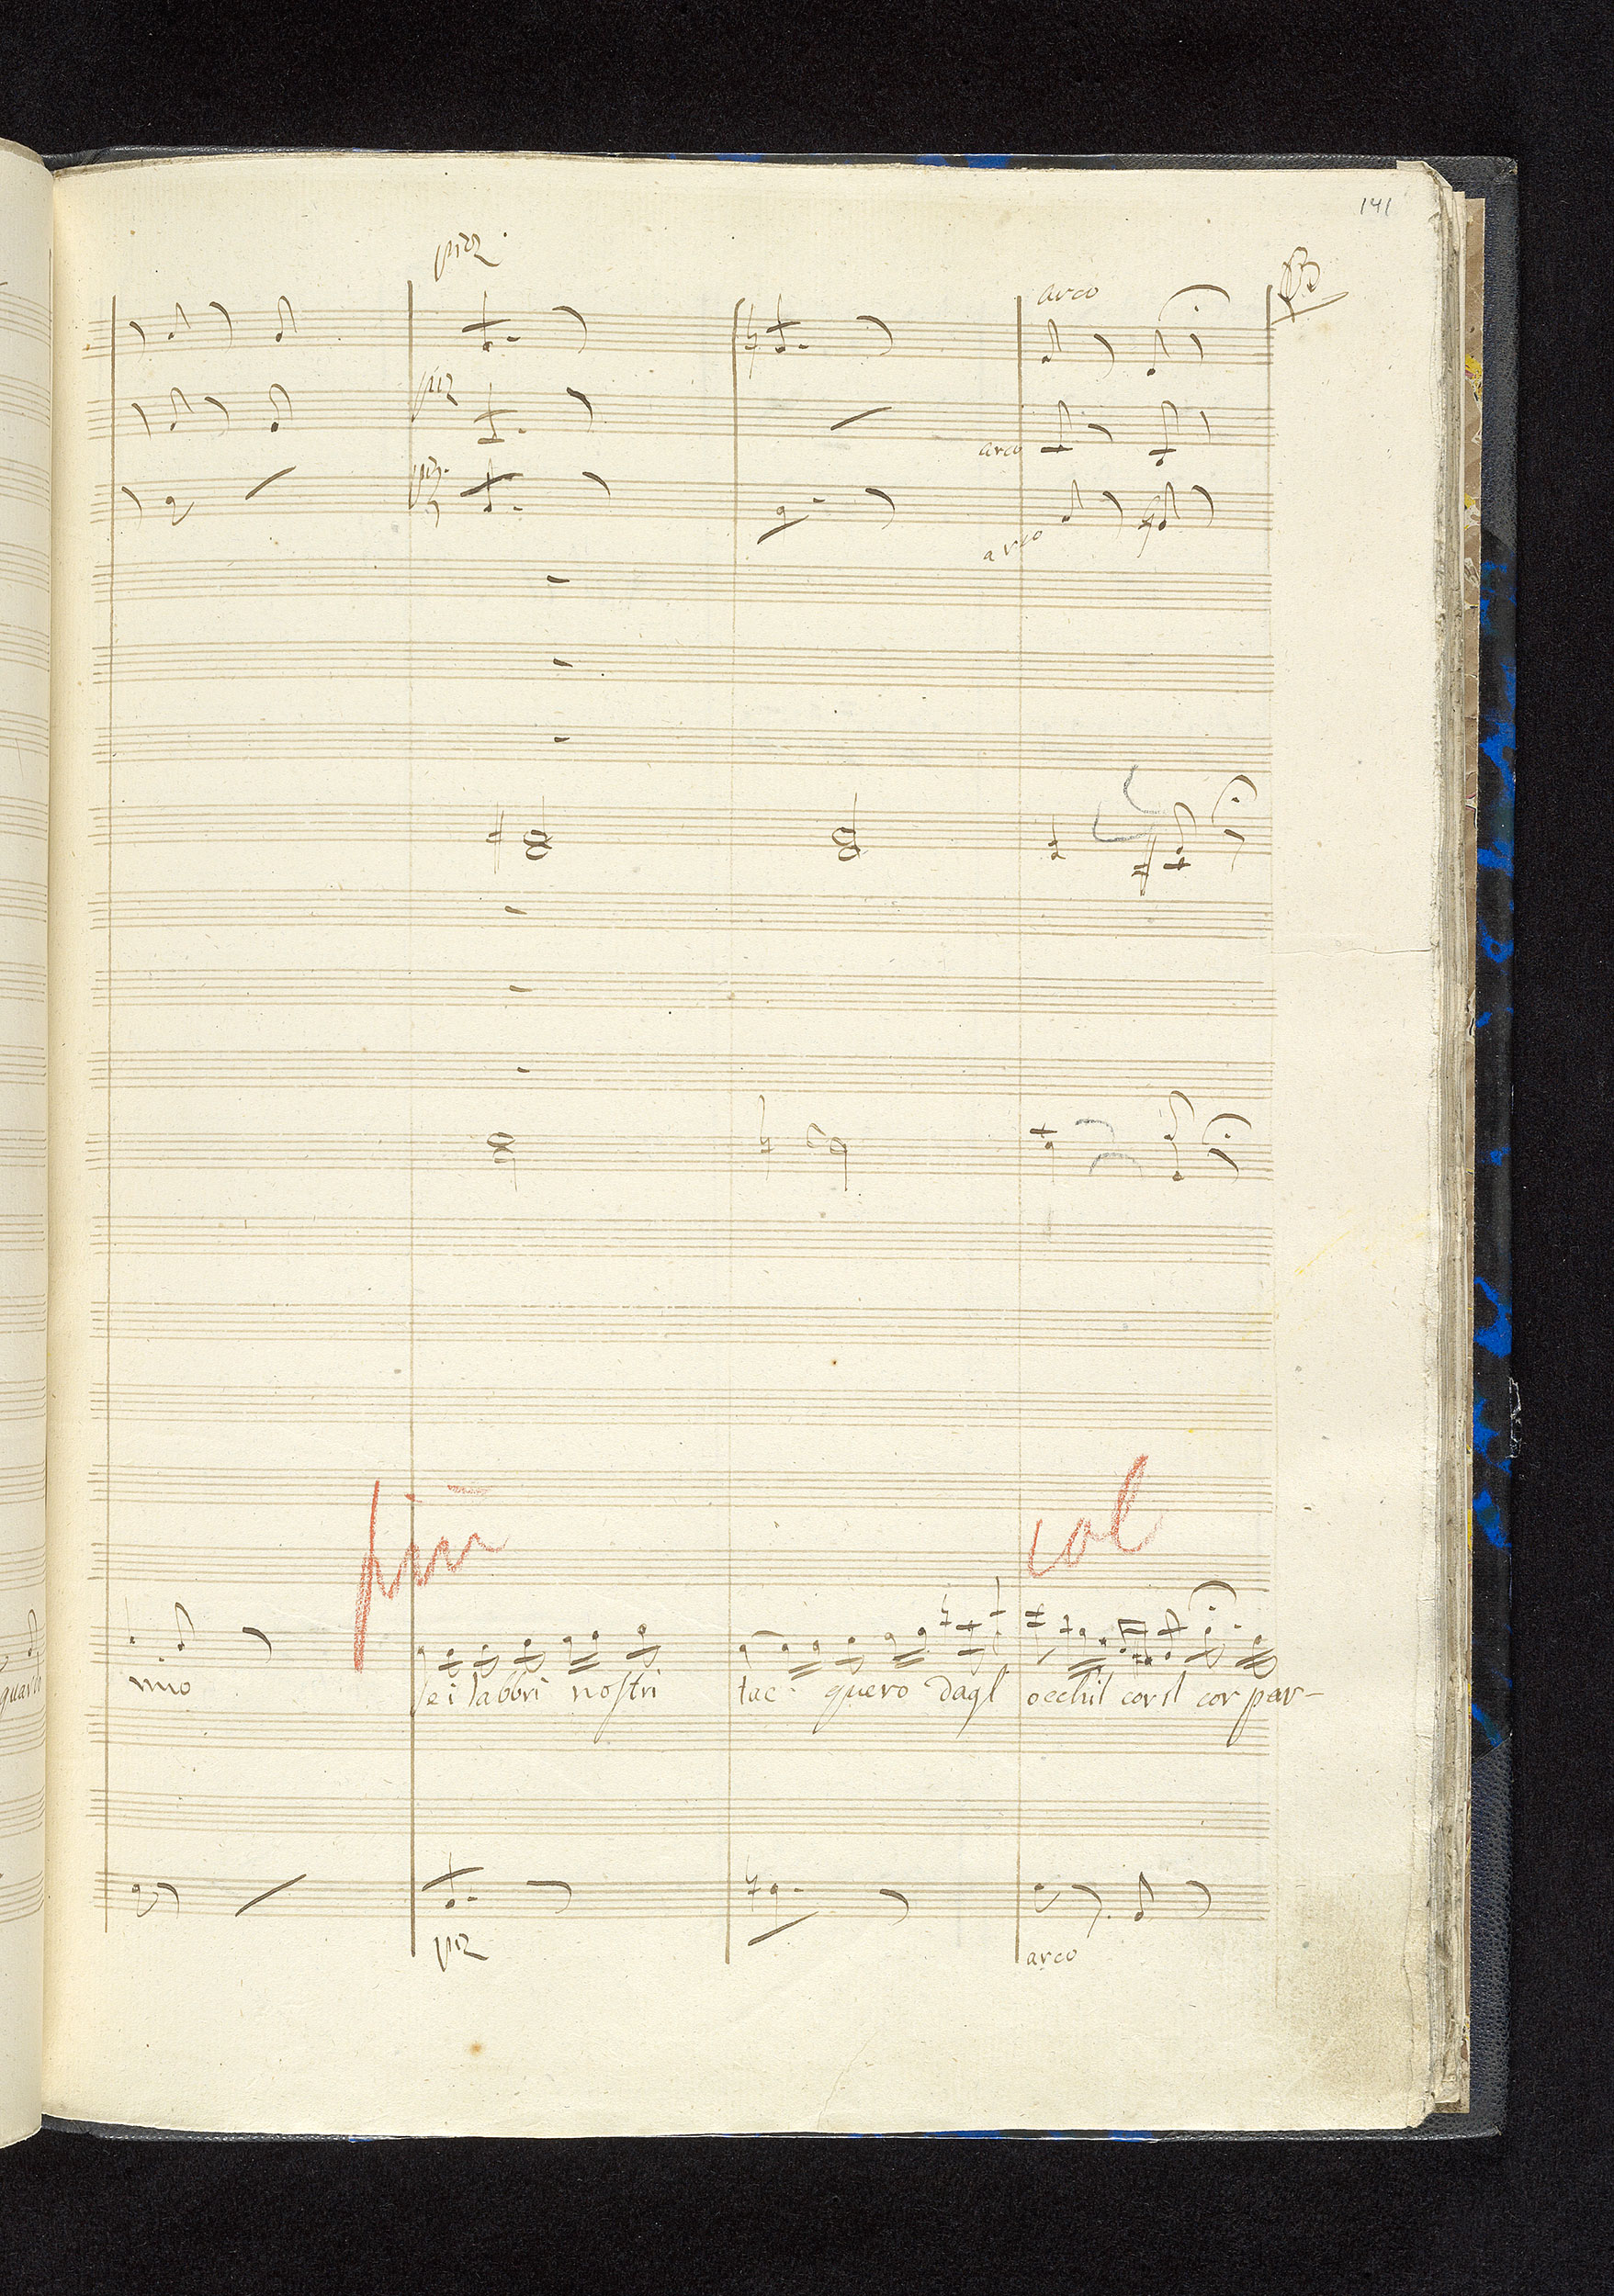 141
piz
arco
piz
arco
piz
arco
più
col
quarti
mio
sei labbri nostri
tac quero dagl
occhil coril cor par-
piz
arco